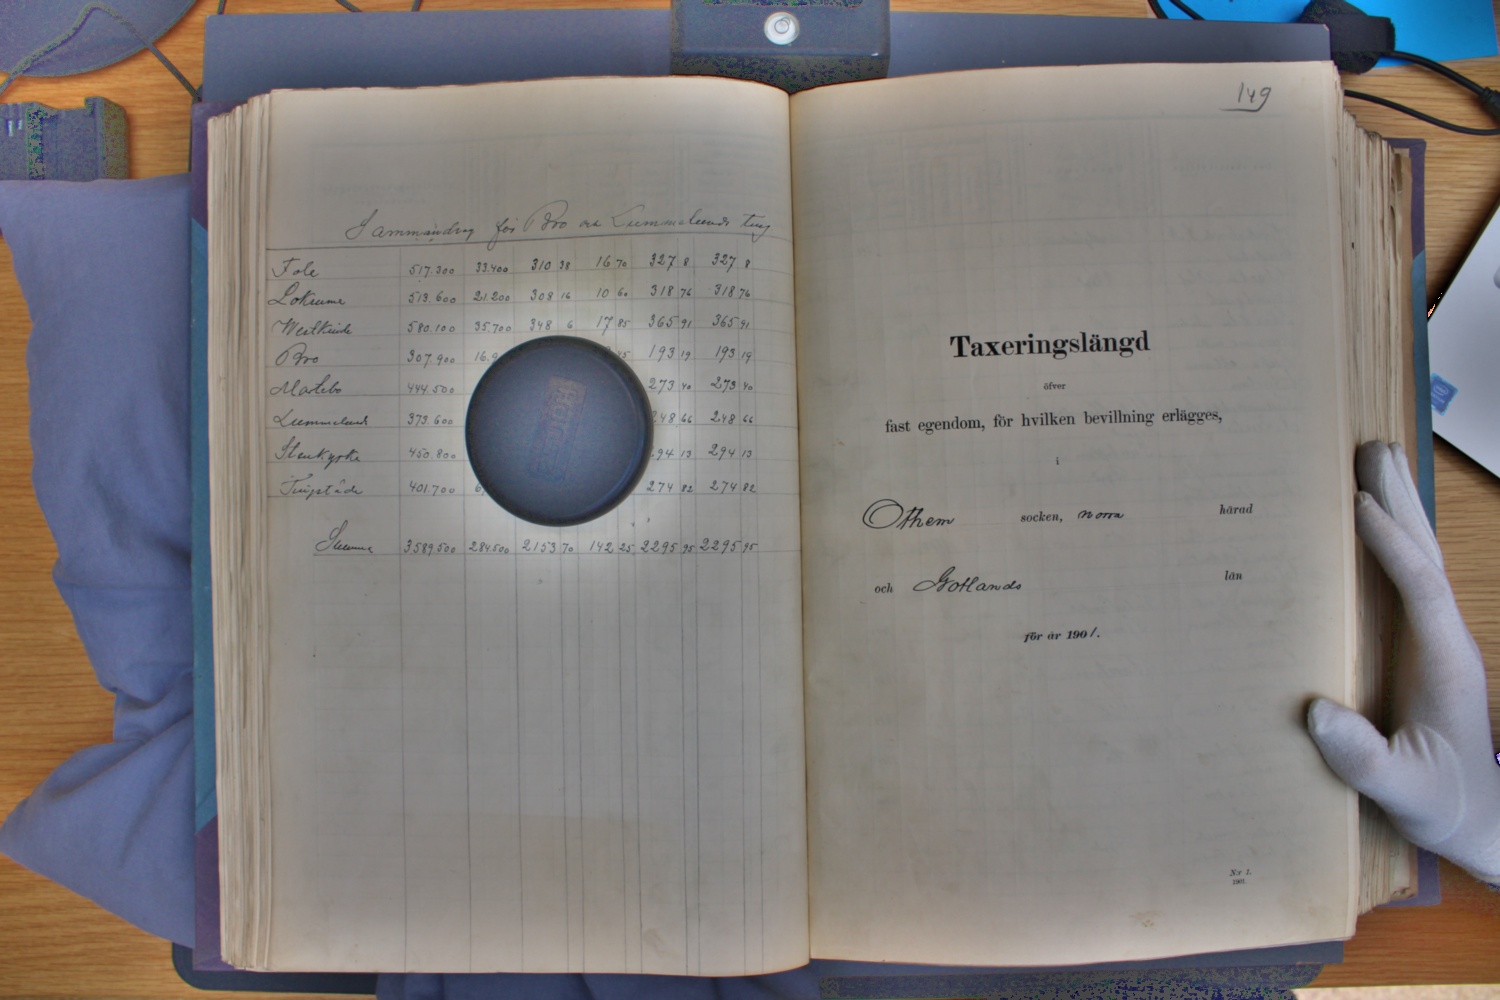 Sammandrag för Bro och Lummelunds ting
Fole 517.300 33.400 310 38 16 70 327 8 327 8
Lokrume 513.600 21.200 308 16 10 60 318 76 318 76
Westkinde 580.100 35.700 348 6 17 85 365 91 365 91
Bro 307.900 16.9 45 193 19 193 19
Martebo 444.500 273 40 273 40
Lummelund 373.600 248 66 248 66
Stenkyrka 450.800 294 13 294 13
Tingstäde 401.700 6 274 82 274 82
Summa 3589.500 284.500 2153 70 142 25 2295 95 2295 95
149
Taxeringslängd
öfver
fast egendom, för hvilken bevillning erlägges,
i
Othem socken, norra härad
och Gotlands län
för år 1901.
N:r 1.
1901.